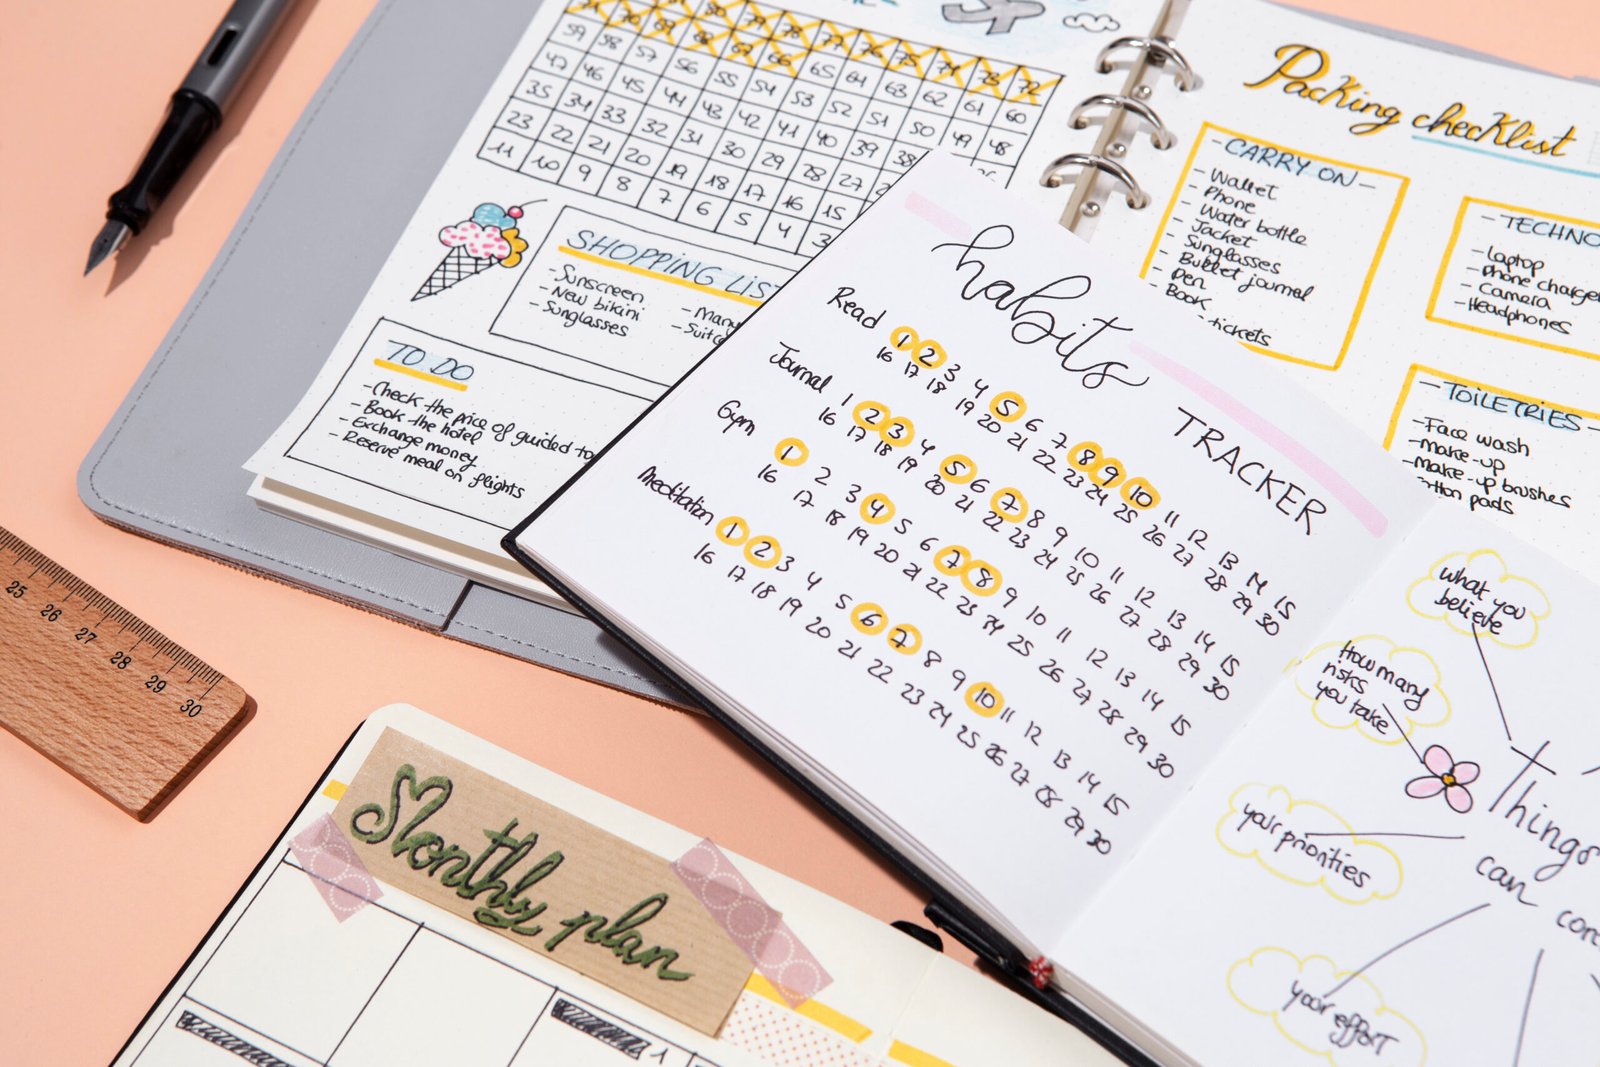 59 58 57 56 55 54 53 52 51 50 49 48
47 46 45 44 43 42 41 40 39 38
35 34 33 32 31 30 29 28 27
23 22 21 20 19 18 17 16 15
11 10 9 8 7 6 5 4 3
SHOPPING LIST
- Sunscreen
- New bikini
- Sunglasses
TO DO
- Check the price of guided
- Book the hotel
- Exchange money
- Reserve meal on flights
Packing checklist
- CARRY ON -
- Wallet
- Phone
- Water bottle
- Jacket
- Sunglasses
- Bullet journal
- Pen
- Book
tickets
- TECHNO
- Laptop
- Phone charge
- Camera
- Headphones
- TOILETRIES -
- Face wash
- Make-up
- Make-up brushes
pads
habits
TRACKER
Read 1 2 3 4 5 6 7 8 9 10 11 12 13 14 15
16 17 18 19 20 21 22 23 24 25 26 27 28 29 30
Journal 1 2 3 4 5 6 7 8 9 10 11 12 13 14 15
16 17 18 19 20 21 22 23 24 25 26 27 28 29 30
Gym 1 2 3 4 5 6 7 8 9 10 11 12 13 14 15
16 17 18 19 20 21 22 23 24 25 26 27 28 29 30
Meditation 1 2 3 4 5 6 7 8 9 10 11 12 13 14 15
16 17 18 19 20 21 22 23 24 25 26 27 28 29 30
what you
believe
How many
risks
you take
your priorities
your effort
Things
can
con
25 26 27 28 29 30
Monthly plan
1